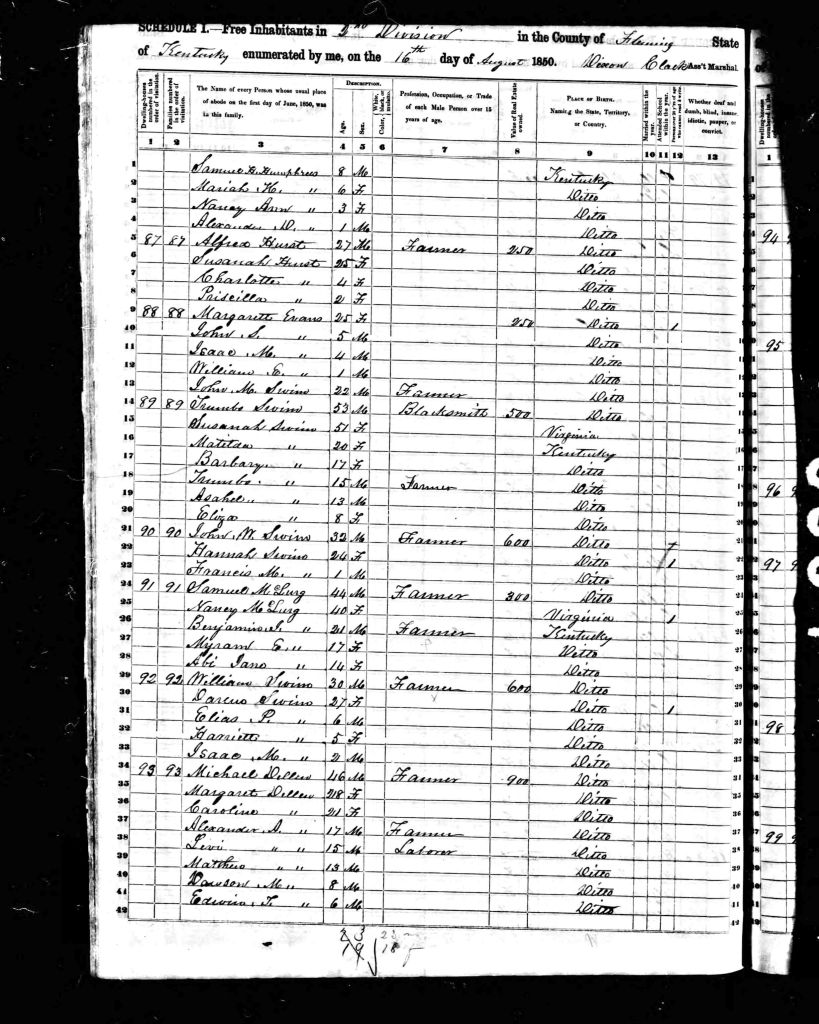 SCHEDULE I.—Free Inhabitants in 2nd Division in the County of Fleming State
of Kentucky enumerated by me, on the 16th day of August 1850. Dixon Clack Ass't Marshal
Dwelling-houses numbered in the order of visitation. Families numbered in the order of visitation. The Name of every Person whose usual place of abode on the first day of June, 1850, was in this family. Description. Age. Sex. Color, White, black, or mulatto. Profession, Occupation, or Trade of each Male Person over 15 years of age. Value of Real Estate owned. Place of Birth. Naming the State, Territory, or Country. Married within the year. Attended School within the year. Whether deaf and dumb, blind, insane, idiotic, pauper, or convict.
1 2 3 4 5 6 7 8 9 10 11 12 13 1
1 Samuel H. Humphrees 8 M Kentucky 1
2 Mariah H. " 6 F Ditto
3 Nancy Ann " 3 F Ditto
4 Alexander D. " 1 M Ditto
5 87 87 Alfred Hurst 27 M Farmer 250 Ditto 94
6 Susanah Hurst 25 F Ditto
7 Charlotte " 4 F Ditto
8 Priscilla " 2 F Ditto
9 88 88 Margarett Evans 25 F 250 Ditto 1
10 John S. " 5 M Ditto 95
11 Isaac M. " 4 M Ditto
12 William " 1 M Ditto
13 John M. Swim 22 M Farmer Ditto
14 89 89 Trumbo Swim 53 M Blacksmith 500 Ditto
15 Susanah Swim 51 F Virginia
16 Matilda " 20 F Kentucky
17 Barbary " 17 F Ditto
18 Trumbo " 15 M Farmer Ditto 96
19 Asahel " 13 M Ditto
20 Eliza " 8 F Ditto
21 90 90 John W. Swim 32 M Farmer 600 Ditto
22 Hannah Swim 24 F Ditto 1 97
23 Francis M. " 1 M Ditto
24 91 91 Samuel McLurg 44 M Farmer 300 Ditto
25 Nancy McLurg 40 F Virginia 1
26 Benjamin " 21 M Farmer Kentucky
27 Myram E. " 17 F Ditto
28 Abi Jane " 14 F Ditto
29 92 92 William Swim 30 M Farmer 600 Ditto
30 Swim 27 F Ditto 1
31 Elias P. " 6 M Ditto 98
32 Harriett " 5 F Ditto
33 Isaac M. " 2 M Ditto
34 93 93 Michael Dillen 46 M Farmer 900 Ditto
35 Margaret Dillen F Ditto
36 Caroline " 21 F Ditto
37 Alexander A. " 17 M Farmer Ditto 99
38 Levi " " 15 M Laborer Ditto
39 Mathew " " 13 M Ditto
40 Dawson M. " 8 M Ditto
41 Edwin F. " 6 M Ditto
42
23
19 18